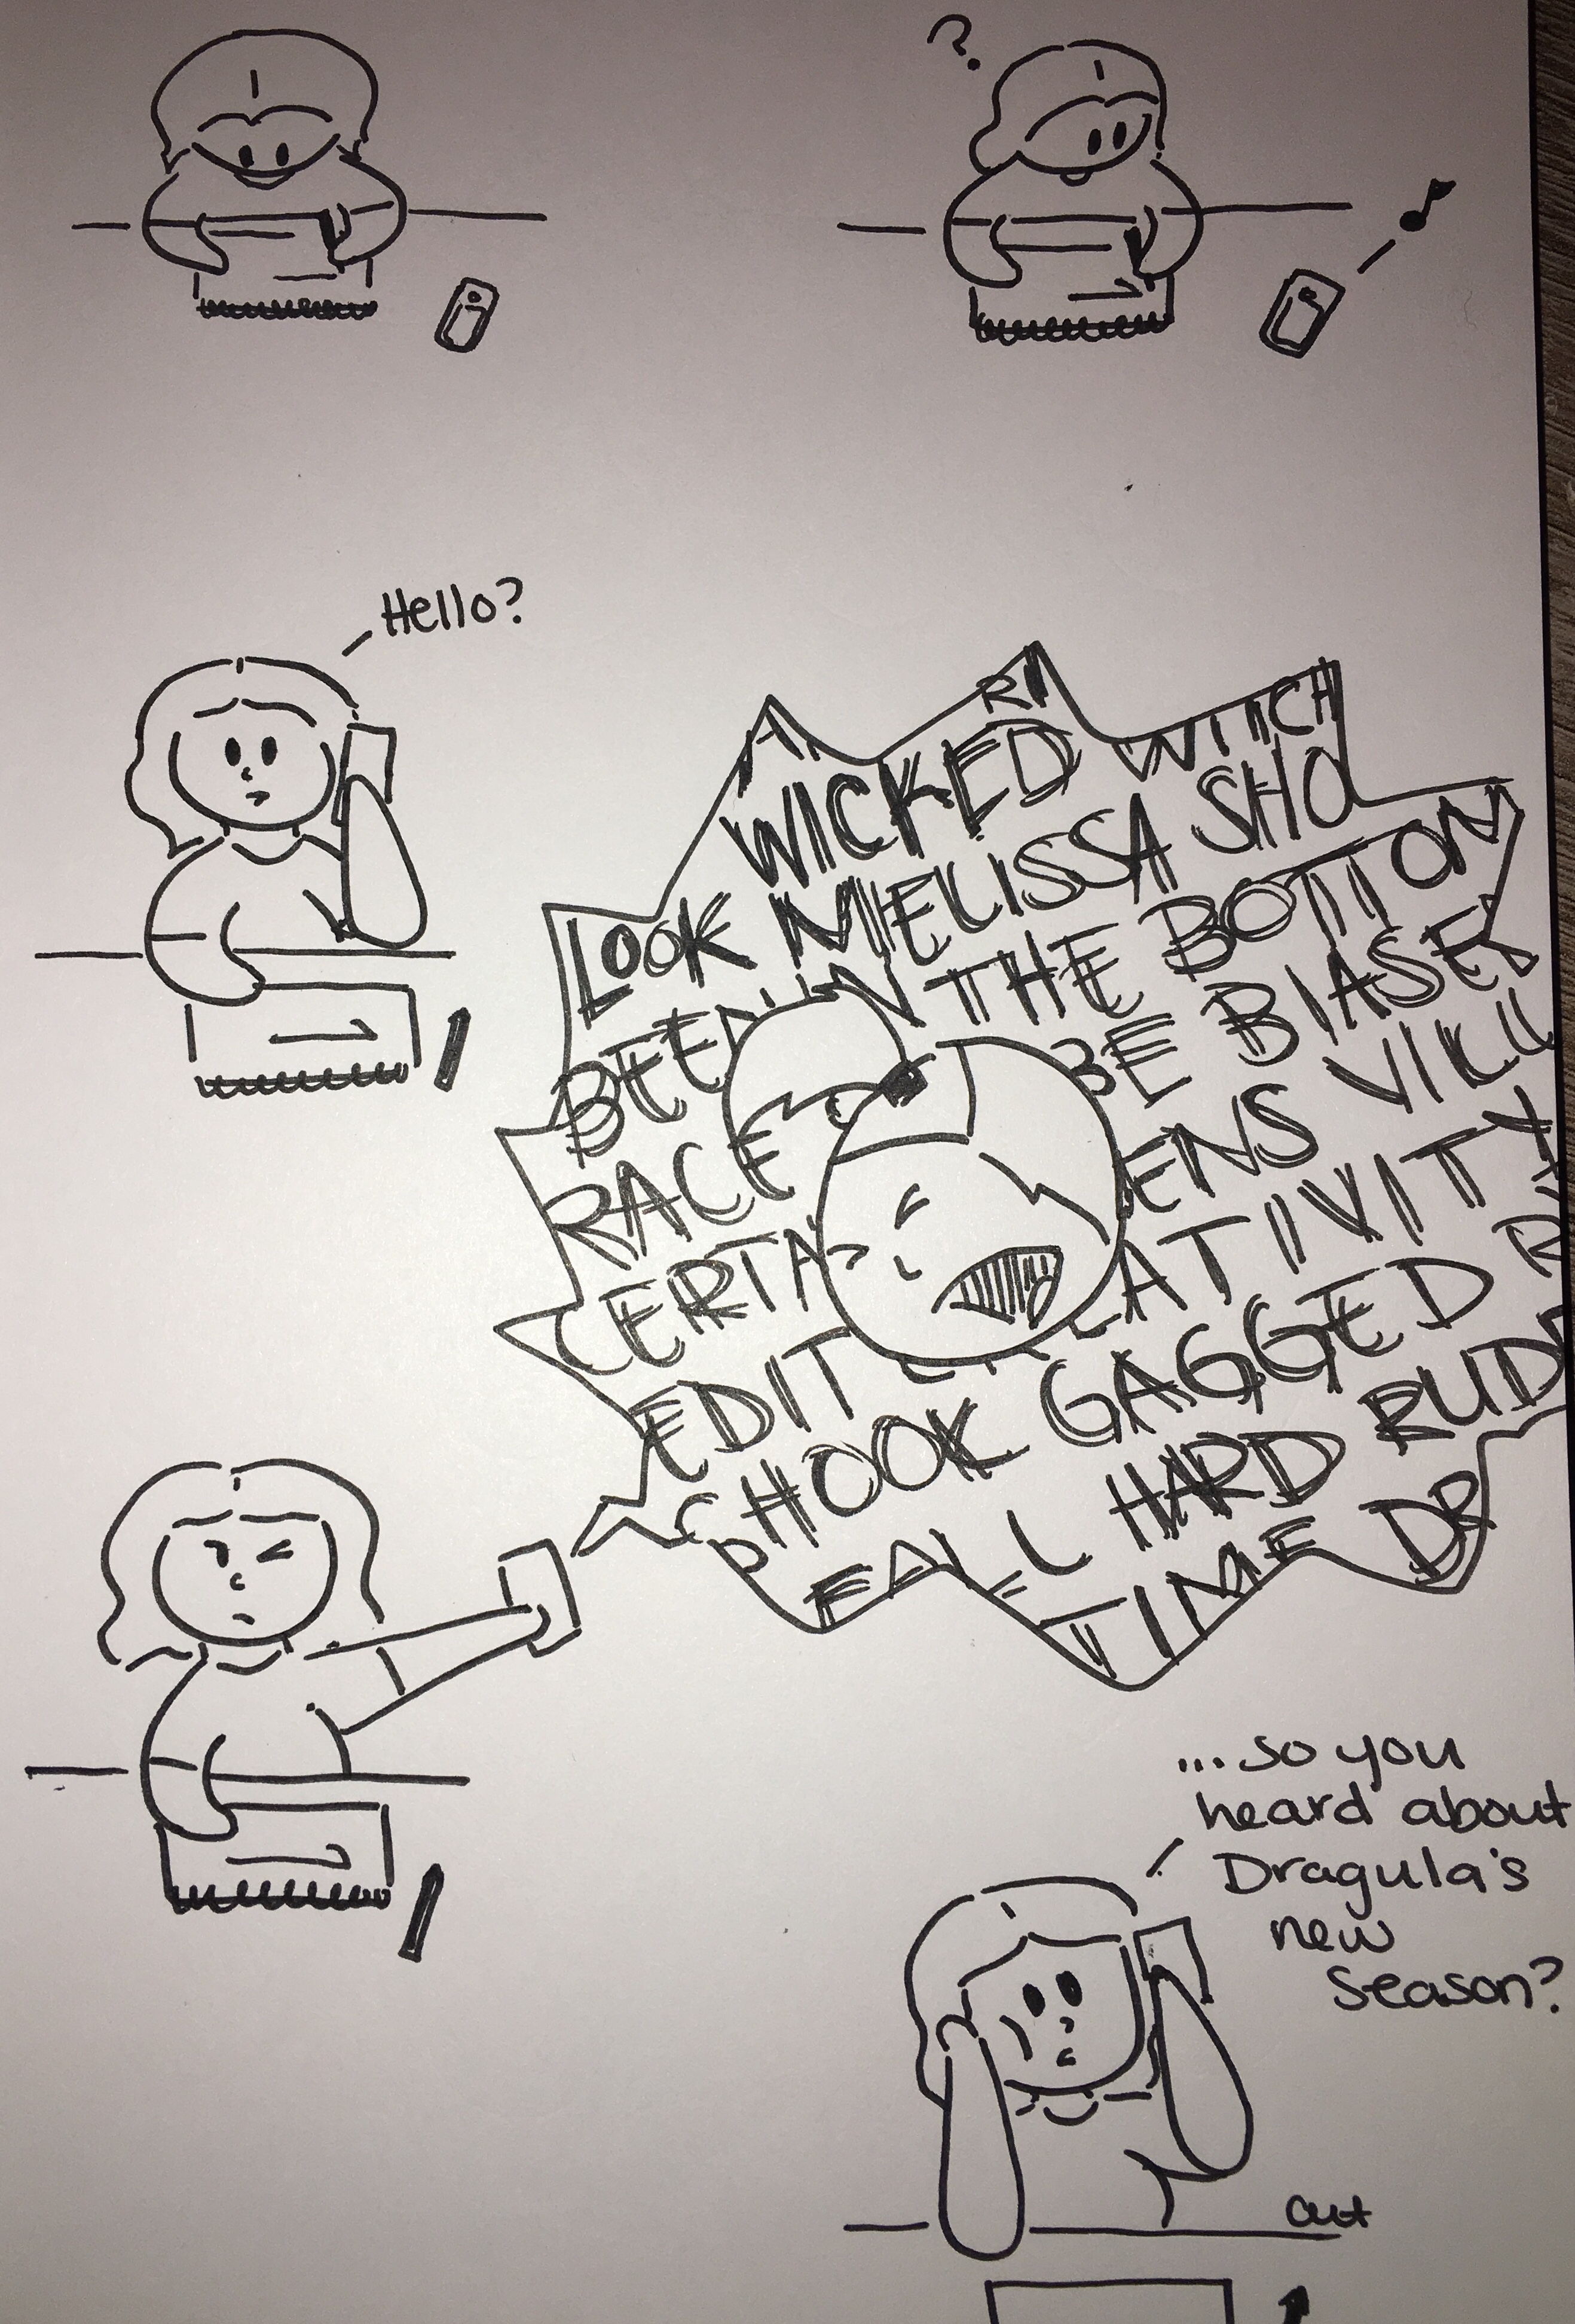 ?
Hello?
WICKED WITCH
LOOK MELISSA SHO
BEEN IN THE BOTTOM
RACE BE BIASED
CERTA ENS VILL
EDIT ATIVITY
SHOOK GAGGED
FALL HARD RUD
TIME DR
...so you
heard about
Dragula's
new
season?